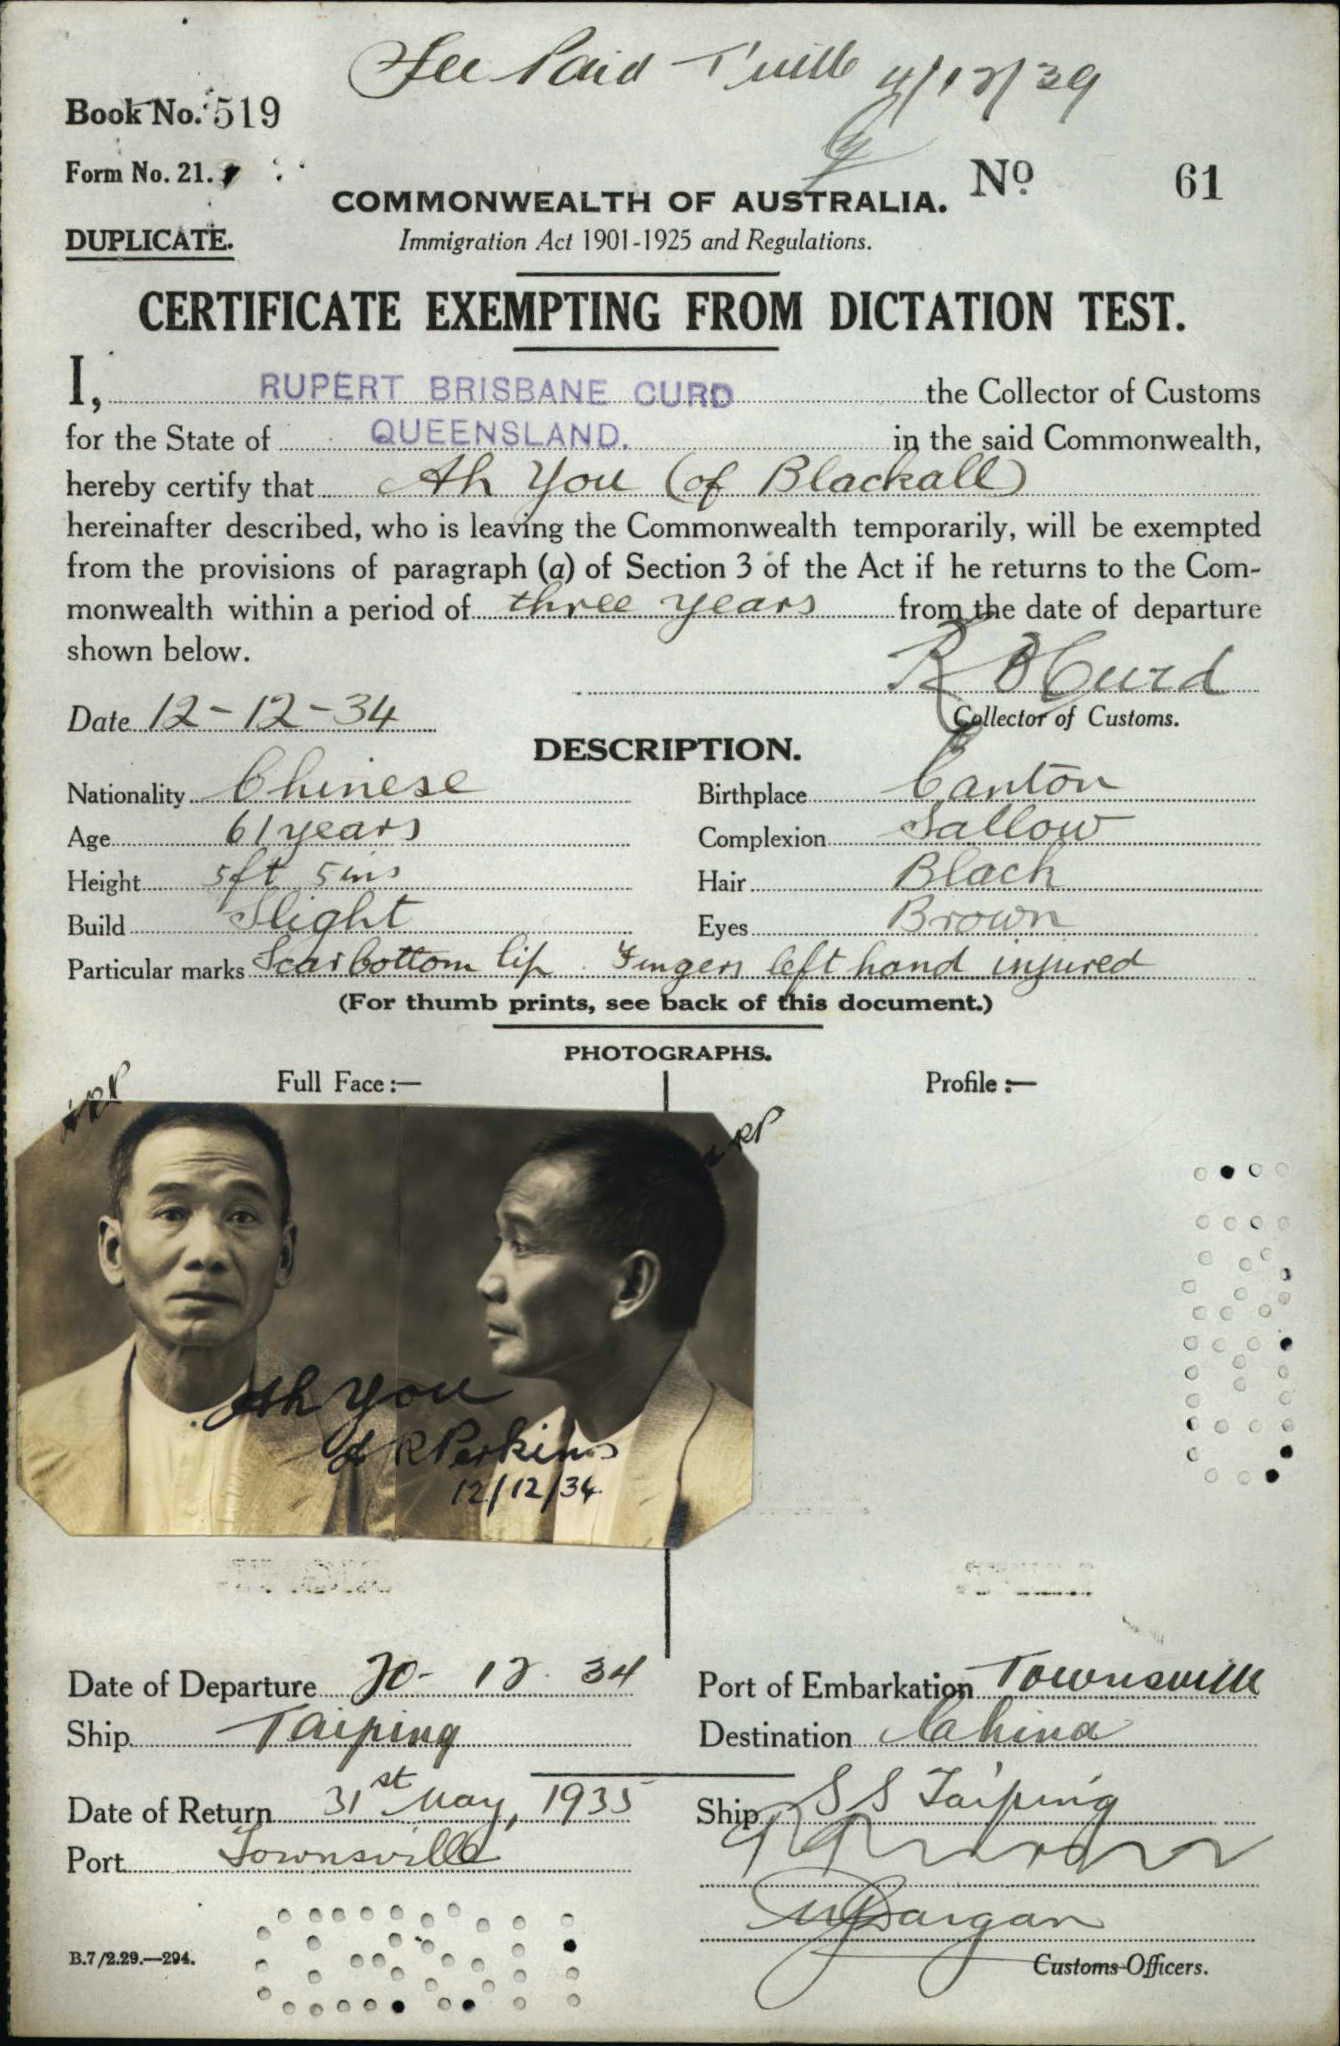 Fee Paid T'ville 4/12/39
Book No. 519
Form No. 21.
No 61
COMMONWEALTH OF AUSTRALIA.
DUPLICATE.
Immigration Act 1901-1925 and Regulations.
CERTIFICATE EXEMPTING FROM DICTATION TEST.
I, RUPERT BRISBANE CURD the Collector of Customs
for the State of QUEENSLAND. in the said Commonwealth,
hereby certify that Ah You (of Blackall)
hereinafter described, who is leaving the Commonwealth temporarily, will be exempted
from the provisions of paragraph (a) of Section 3 of the Act if he returns to the Com-
monwealth within a period of three years from the date of departure
shown below.
R B Curd
Date 12-12-34
Collector of Customs.
DESCRIPTION.
Nationality Chinese Birthplace Canton
Age 61 years Complexion Sallow
Height 5ft 5ins Hair Black
Build Slight Eyes Brown
Particular marks Scar bottom lip. Fingers left hand injured
(For thumb prints, see back of this document.)
PHOTOGRAPHS.
Full Face :— Profile :—
Ah You
R Perkins
12/12/34
Date of Departure 20- 12. 34 Port of Embarkation Townsville
Ship Taiping Destination China
Date of Return 31st May, 1935 Ship S S Taiping
Port Townsville
B.7/2.29.—294.
Customs Officers.